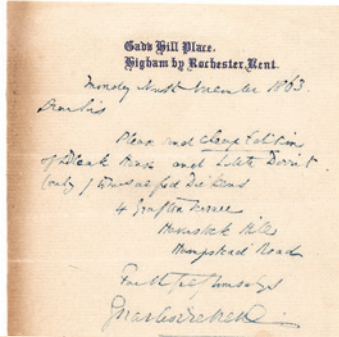 Gad's Hill Place,
Higham by Rochester, Kent.
Monday November 1863.
Dear Sir
Please send cheap Edition
of Bleak House and Little Dorrit
(only) to
4 Grafton Terrace
Haverstock Hill
Hampstead Road
Faithfully Yours
Charles Dickens